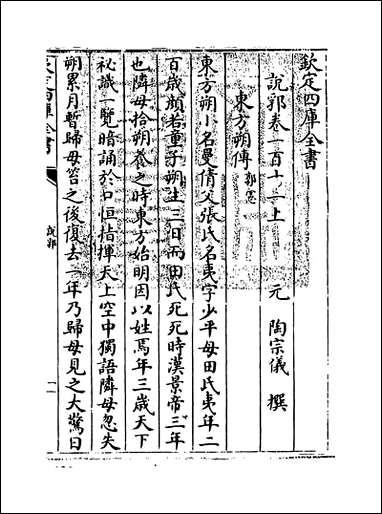 欽定四庫全書
說郛卷一百十一上 元 陶宗儀 撰
東方朔傳 郭憲
東方朔小名曼倩父張氏名夷字少平母田氏夷年二
百歲顔若童子朔生三日而田氏死死時漢景帝三年
也隣母拾朔養之時東方始明因以姓焉年三歲天下
祕識一覽暗誦於口恒指揮天上空中獨語隣母忽失
朔累月暫歸母笞之後復去一年乃歸母見之大驚曰
四庫全書 說郛